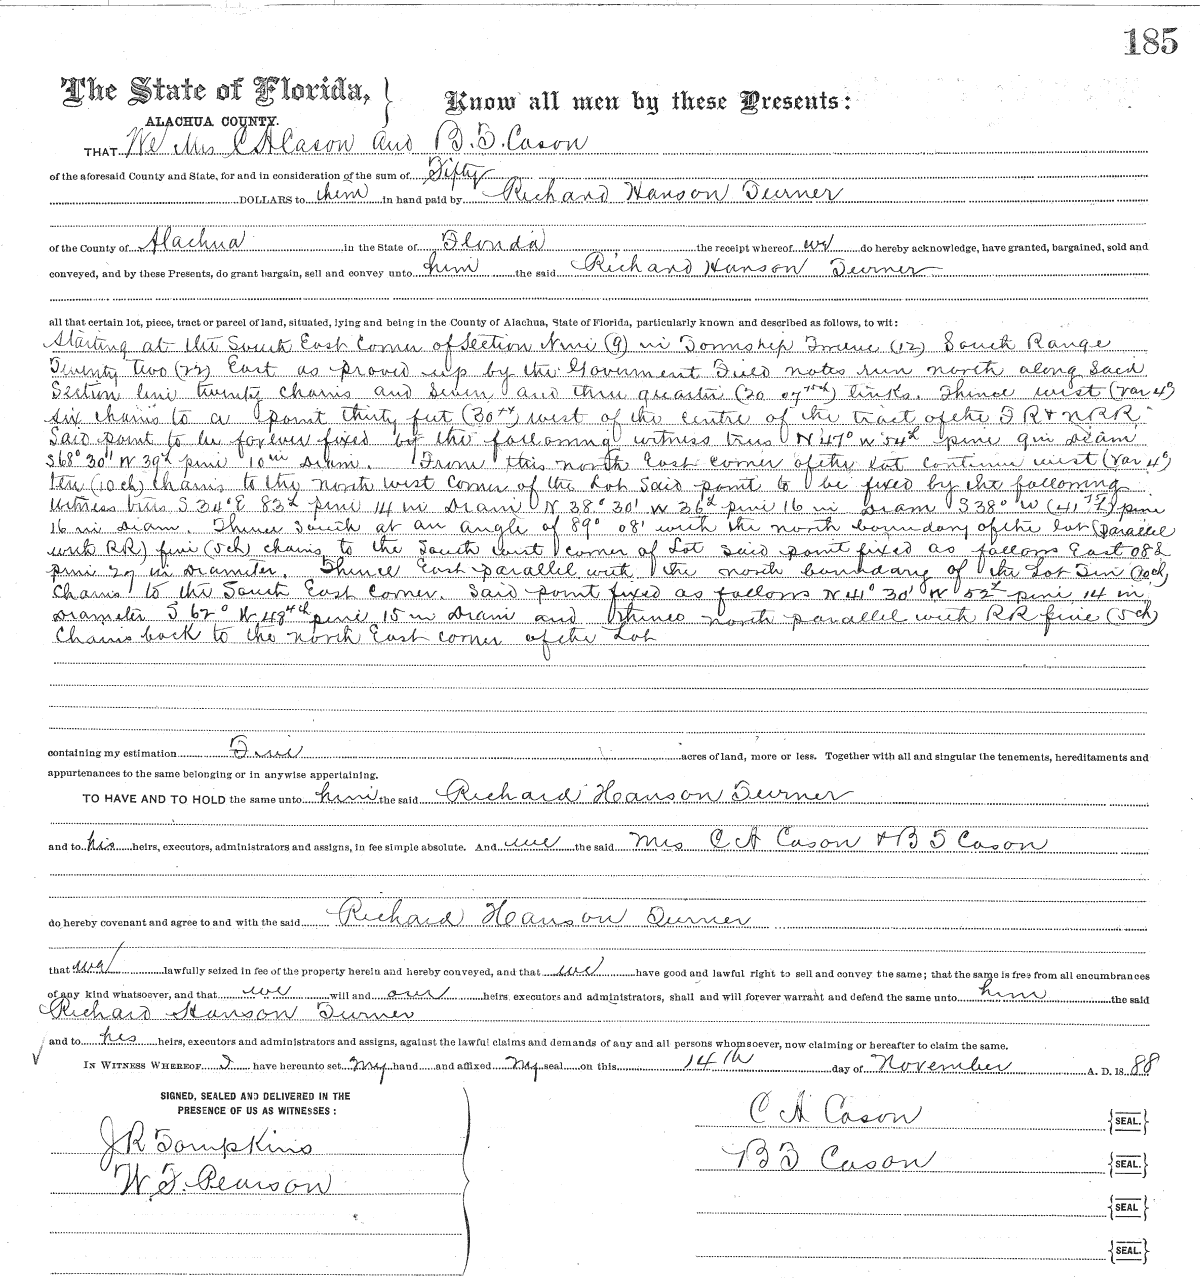 185
The State of Florida, } Know all men by these Presents:
ALACHUA COUNTY.
THAT We Mrs C A Cason and B. F. Cason
of the aforesaid County and State, for and in consideration of the sum of Fifty
DOLLARS to them in hand paid by Richard Hanson Turner
of the County of Alachua in the State of Florida the receipt whereof we do hereby acknowledge, have granted, bargained, sold and
conveyed, and by these Presents, do grant bargain, sell and convey unto him the said Richard Hanson Turner
all that certain lot, piece, tract or parcel of land, situated, lying and being in the County of Alachua, State of Florida, particularly known and described as follows, to wit:
Starting at the South East Corner of Section Nine (9) in Township Twelve (12) South Range
Twenty two (22) East as proved up by the Government Field notes run north along said
Section line twenty chains and seven and three quarter (20 07 ) links. Thence west (var 4°)
six chains to a point thirty feet (30 ft) west of the centre of the tract of the F R & N R R
Said point to be forever fixed by the following witness trees N 47° W 54 L pine 9 in diam
S 68° 30" W 39 L pine 10 in diam. From this north East corner of the lot continue west (var 4°)
ten (10 ch) chains to the north west corner of the Lot Said point to be fixed by the following
witness trees S 34° E 83 L pine 14 in diam N 38° 30' W 36 L pine 16 in diam S 38° W (41 L) pine
16 in diam. Thence South at an angle of 89° 08' with the north boundary of the lot (parallel
with RR) five (5 ch) chains to the South west corner of Lot said point fixed as follows East 08 L
pine 29 in diameter. Thence East parallel with the north boundary of the Lot Ten (10 ch)
Chains to the South East corner. Said point fixed as follows N 41° 30' W 52 L pine 14 in
diameter S 62° W 48 pine 15 in diam and thence north parallel with RR five (5 ch)
Chains back to the north East corner of the Lot
containing my estimation Five acres of land, more or less. Together with all and singular the tenements, hereditaments and
appurtenances to the same belonging or in anywise appertaining.
TO HAVE AND TO HOLD the same unto him the said Richard Hanson Turner
and to his heirs, executors, administrators and assigns, in fee simple absolute. And we the said Mrs C A Cason & B F Cason
do hereby covenant and agree to and with the said Richard Hanson Turner
that we lawfully seized in fee of the property herein and hereby conveyed, and that we have good and lawful right to sell and convey the same; that the same is free from all encumbrances
of any kind whatsoever, and that we will and our heirs executors and administrators, shall and will forever warrant and defend the same unto him the said
Richard Hanson Turner
and to his heirs, executors and administrators and assigns, against the lawful claims and demands of any and all persons whomsoever, now claiming or hereafter to claim the same.
IN WITNESS WHEREOF I have hereunto set my hand and affixed my seal on this 14th day of November A. D. 1888
SIGNED, SEALED AND DELIVERED IN THE
PRESENCE OF US AS WITNESSES:
C A Cason {SEAL.}
J R Tompkins
B F Cason {SEAL.}
W. F. Pearson
{SEAL}
{SEAL.}